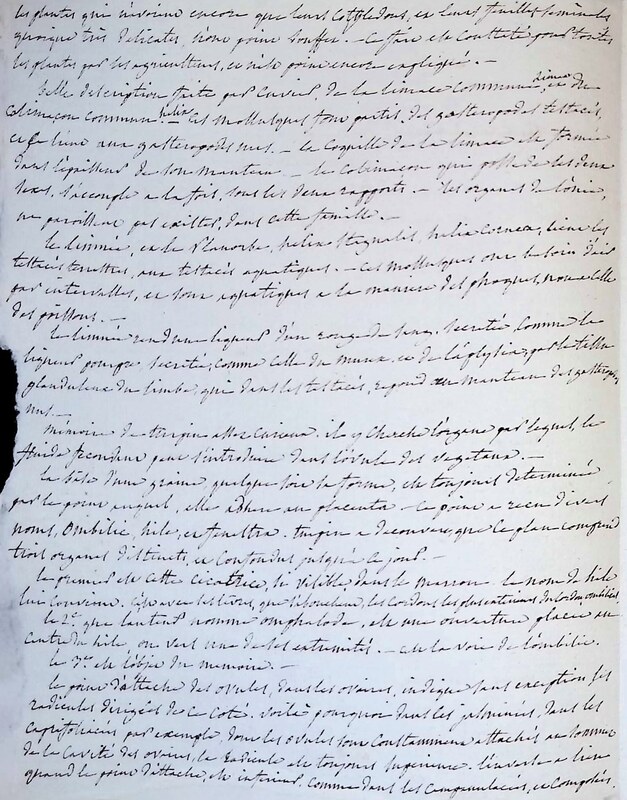 les plantes qui n'avoient encore que leurs cotyledons, et leurs feuilles seminales
quoique très delicates, n'ont point souffert. — Ce fait est constaté pour toutes
les plantes par les agriculteurs, et n'est point encore expliqué. —
belle description faite par Cuvier, de la limace commune, limax, et du
colimaçon commun, helix. — Ces mollusques font partie, des gasteropodes testacés,
aux gasteropodes nus. — La coquille de la limace est formée
dans l'épaisseur de son manteau. — le colimaçon qui possede les deux
sexes, s'accouple a la fois, sous les deux rapports. — les organes de l'ouie,
ne paroissent pas exister, dans cette famille. —
le limnée, et le planorbe, helix stagnalis, helix cornea, lient les
testacés terrestres, aux testacés aquatiques. — Ces mollusques ont besoin d'air
par intervalles, et sont aquatiques a la maniere des phoques, non a celle
des poissons. —
le limnée rend une liqueur d'un rouge de sang, secretée, comme la
liqueur pourpre, secretée, comme celle du murex, et de l'aplysia, par le tissu
glanduleux du limbe, qui dans les testacés, repond au manteau des gasterop.
nus. —
mémoire de turpin assez curieux. il y cherche l'organe par lequel, le
fluide fecondant peut s'introduire dans l'ovule des vegetaux. —
la base d'une graine, quelque soit sa forme, est toujours determinée
par le point auquel, elle adhere au placenta. — Ce point a reçu divers
noms, ombilic, hile, et fenestra. turpin a decouvert, que ce plan comprend
trois organes distincts, et confondus jusqu'à ce jour. —
le premier est cette cicatrice, si visible, dans le marron. le nom de hile
lui convient. les plus exterieurs du cordon ombilical.
le 2e. que l'auteur nomme omphalode, est une ouverture placée au
centre du hile, ou vers une de ses extremités. — c'est la voie de l'ombilic.
le 3e. est l'objet du memoire. —
le point d'attache des ovules, dans les ovaires, indique sans exception les
radicules dirigées de ce coté. voila pourquoi dans les jasminées, dans les
caprifoliacées par exemple, dont les ovules sont constamment attachés au sommet
de la cavité des ovaires, la radicule est toujours superieure. l'inverse a lieu
quand le point d'attache, est inferieur, comme dans les campanulacées, et composées.